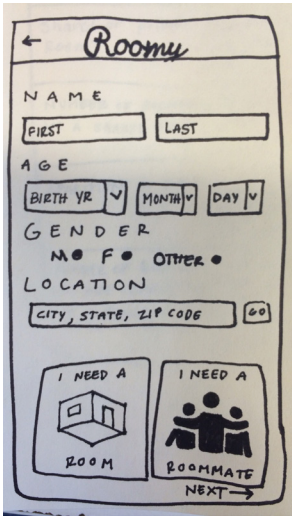 ← Roomy
NAME
FIRST LAST
AGE
BIRTH YR MONTH DAY
GENDER
M F OTHER
LOCATION
CITY, STATE, ZIP CODE GO
I NEED A I NEED A
ROOM ROOMMATE
NEXT →